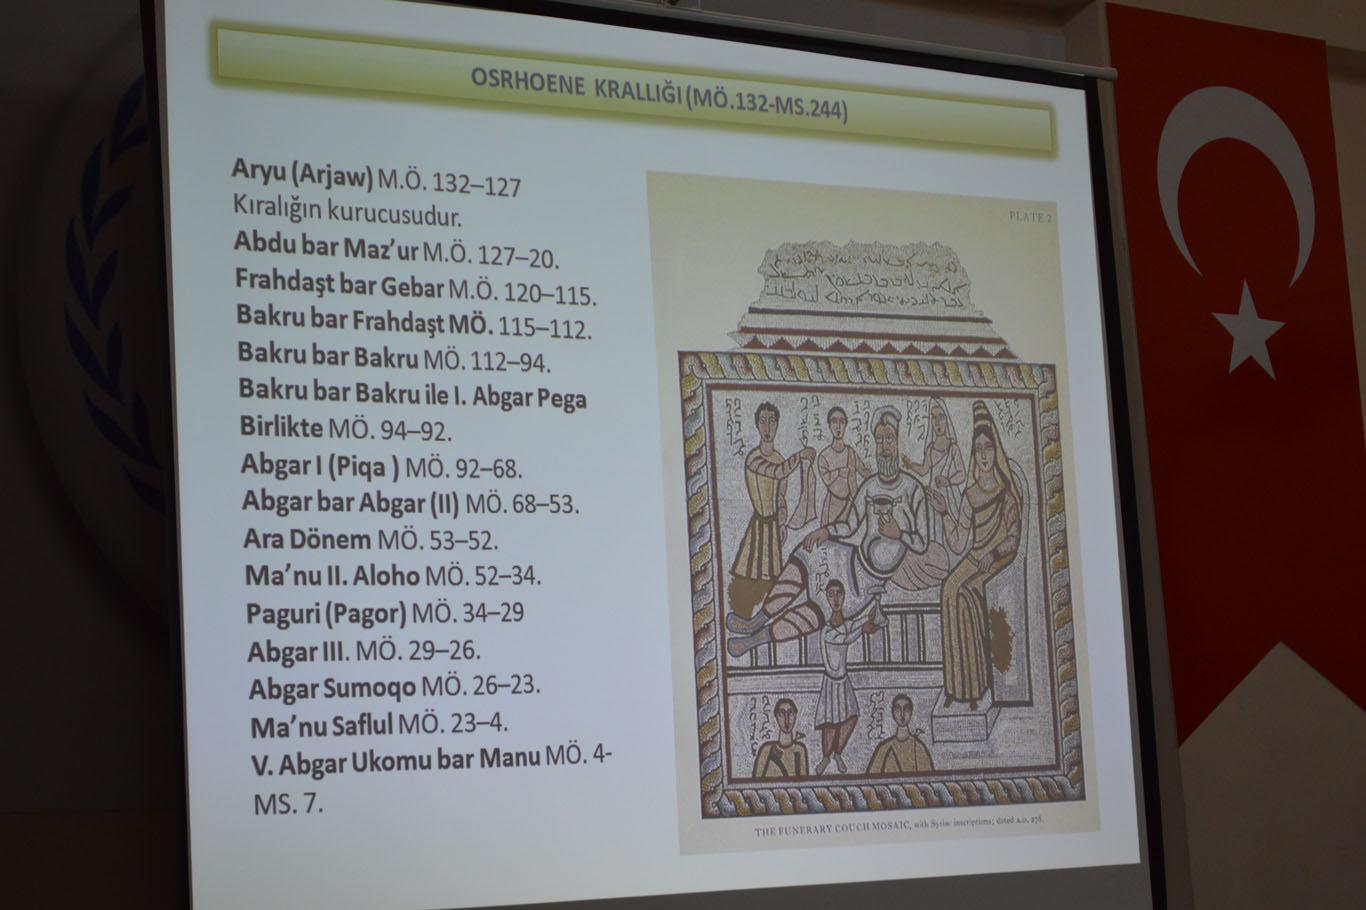 OSRHOENE KRALLIĞI(MÖ.132-MS.244)
Aryu (Arjaw) M.Ö. 132–127
Kıralığın kurucusudur.
Abdu bar Maz’ur M.Ö. 127–20.
Frahdaşt bar Gebar M.Ö. 120–115.
Bakru bar Frahdaşt MÖ. 115–112.
Bakru bar Bakru MÖ. 112–94.
Bakru bar Bakru ile I. Abgar Pega
Birlikte MÖ. 94–92.
Abgar I (Piqa ) MÖ. 92–68.
Abgar bar Abgar (II) MÖ. 68–53.
Ara Dönem MÖ. 53–52.
Ma’nu II. Aloho MÖ. 52–34.
Paguri (Pagor) MÖ. 34–29
Abgar III. MÖ. 29–26.
Abgar Sumoqo MÖ. 26–23.
Ma’nu Saflul MÖ. 23–4.
V. Abgar Ukomu bar Manu MÖ. 4-
MS. 7.
PLATE 2
THE FUNERARY COUCH MOSAIC, with Syriac inscriptions; dated A.D. 278.